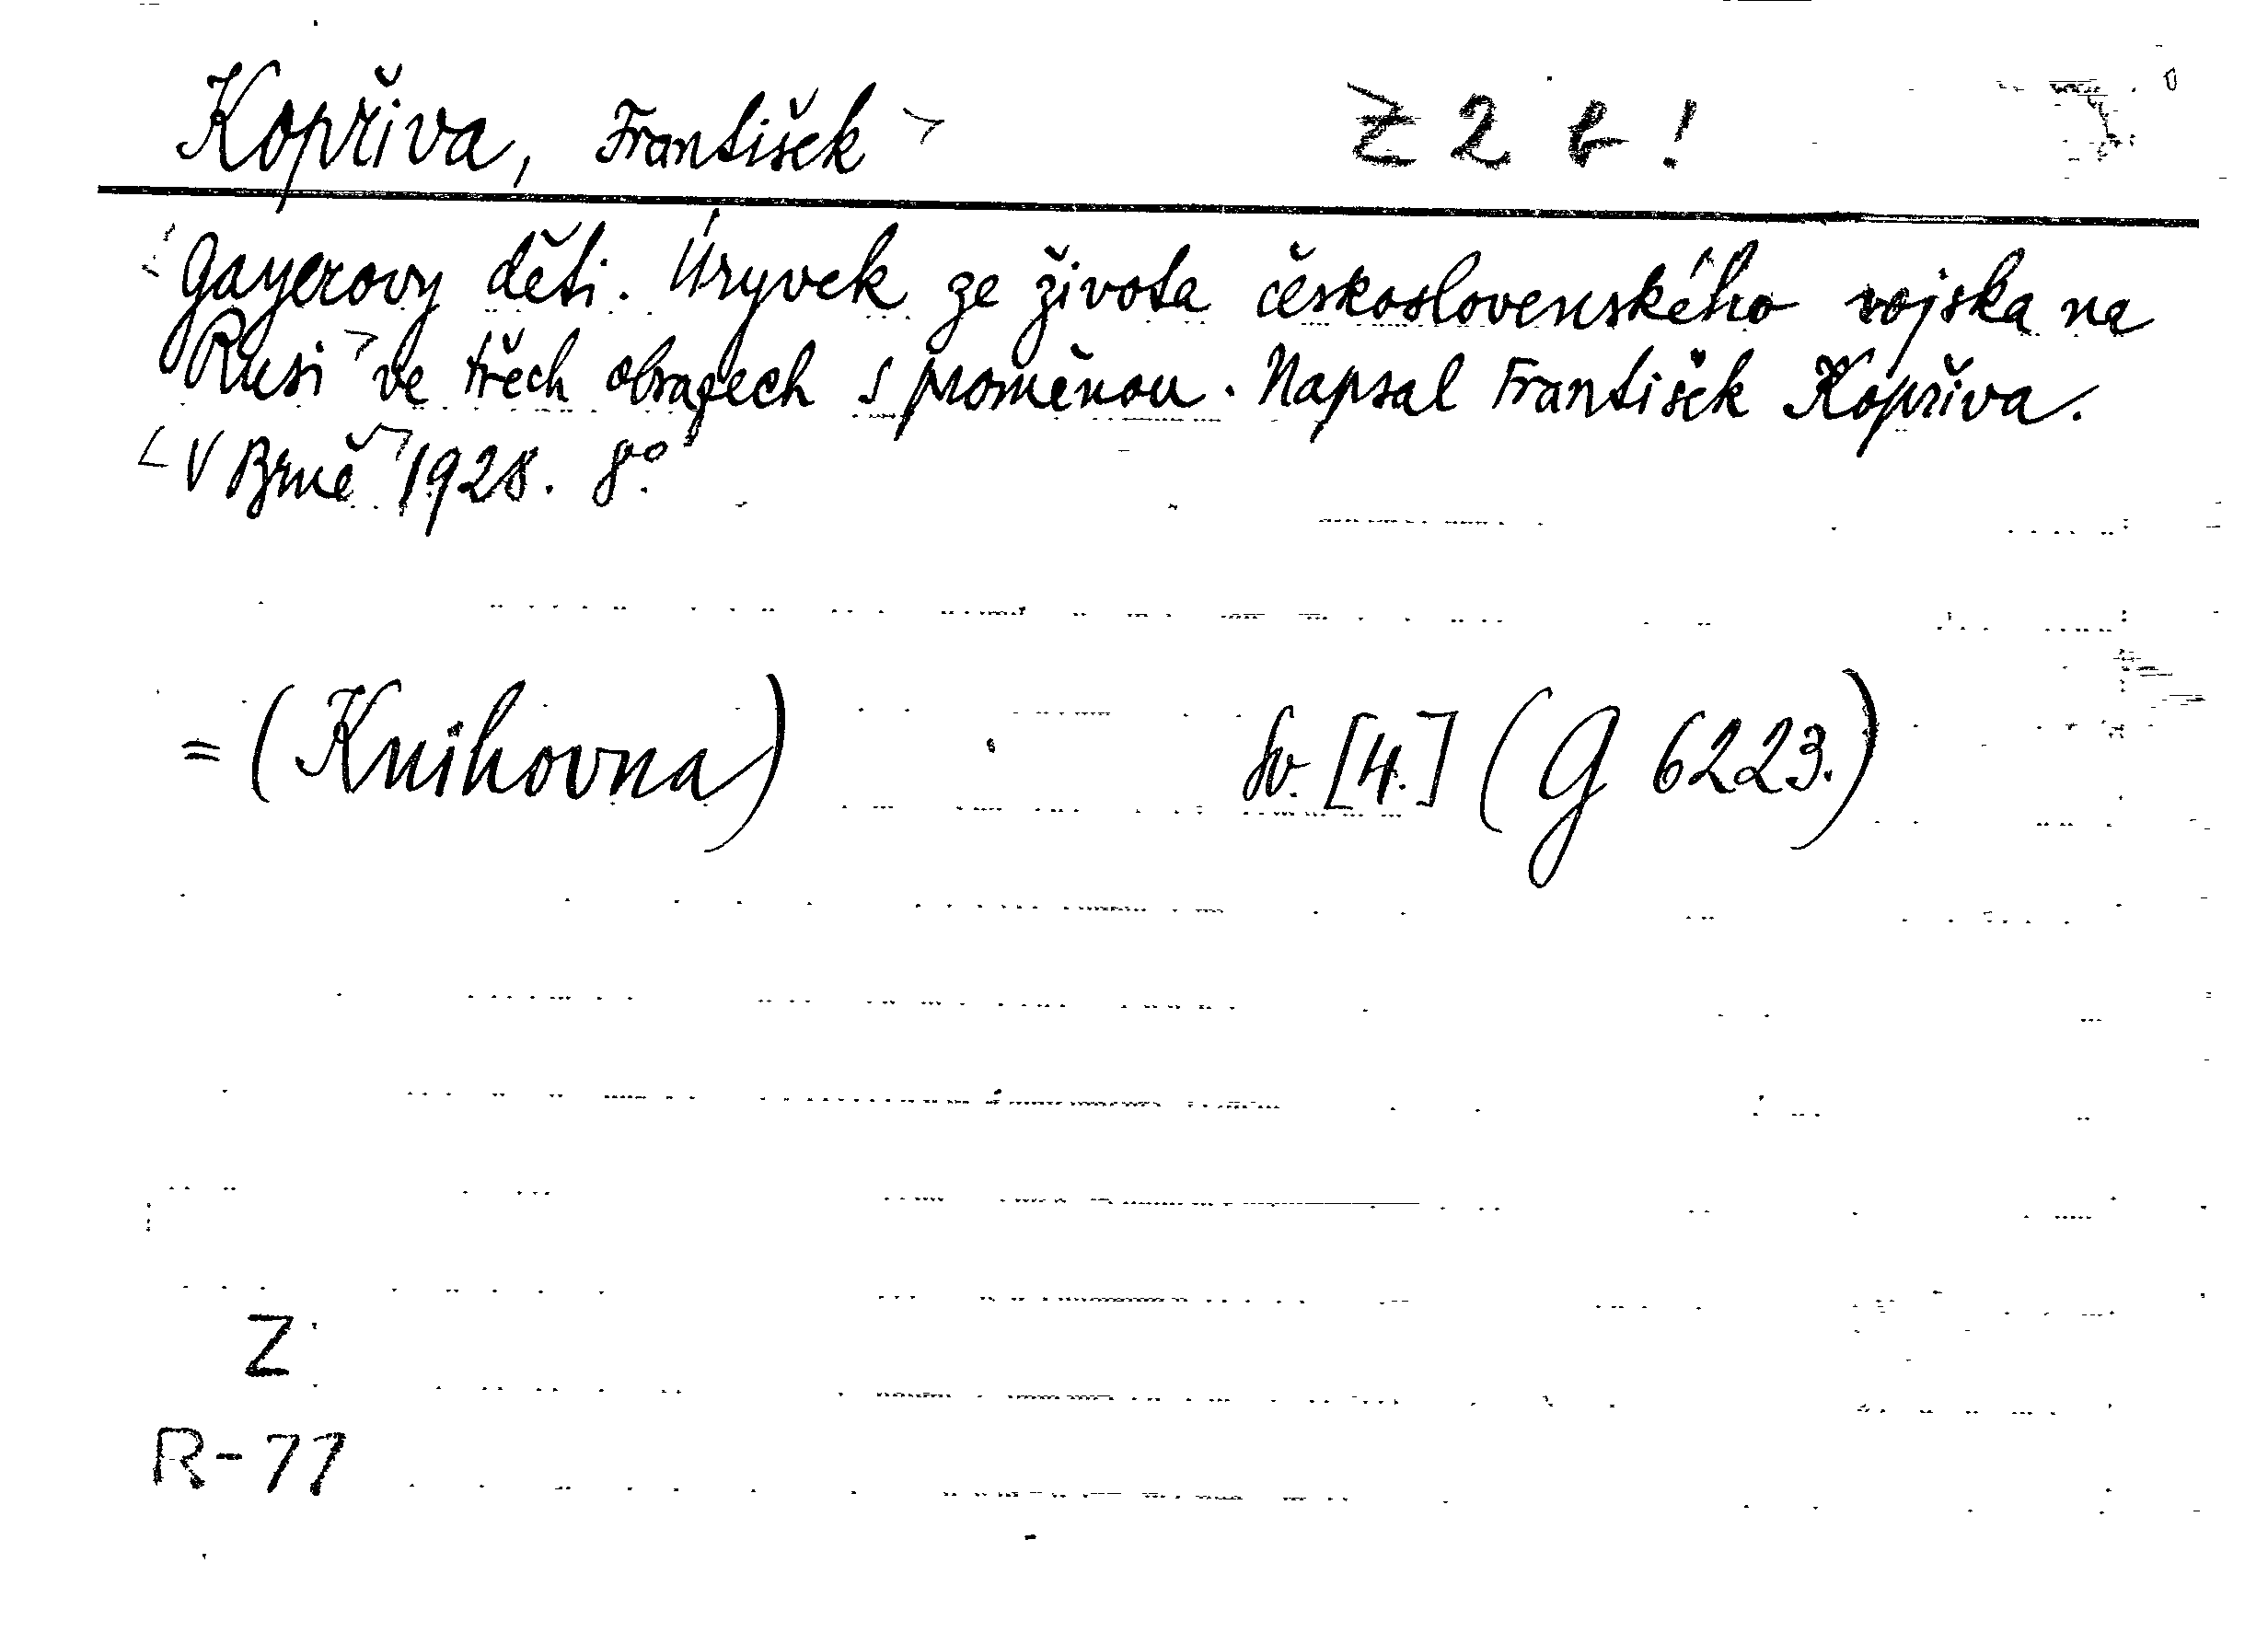 Kopřiva, František Z 2 b!
Gayerovy děti. Úryvek ze života československého vojska na
Rusi ve třech obrazech s proměnou. Napsal František Kopřiva.
V Brně 1928. 8°
= (Knihovna) Sv. [4.] (G 6223.)
Z
R-77